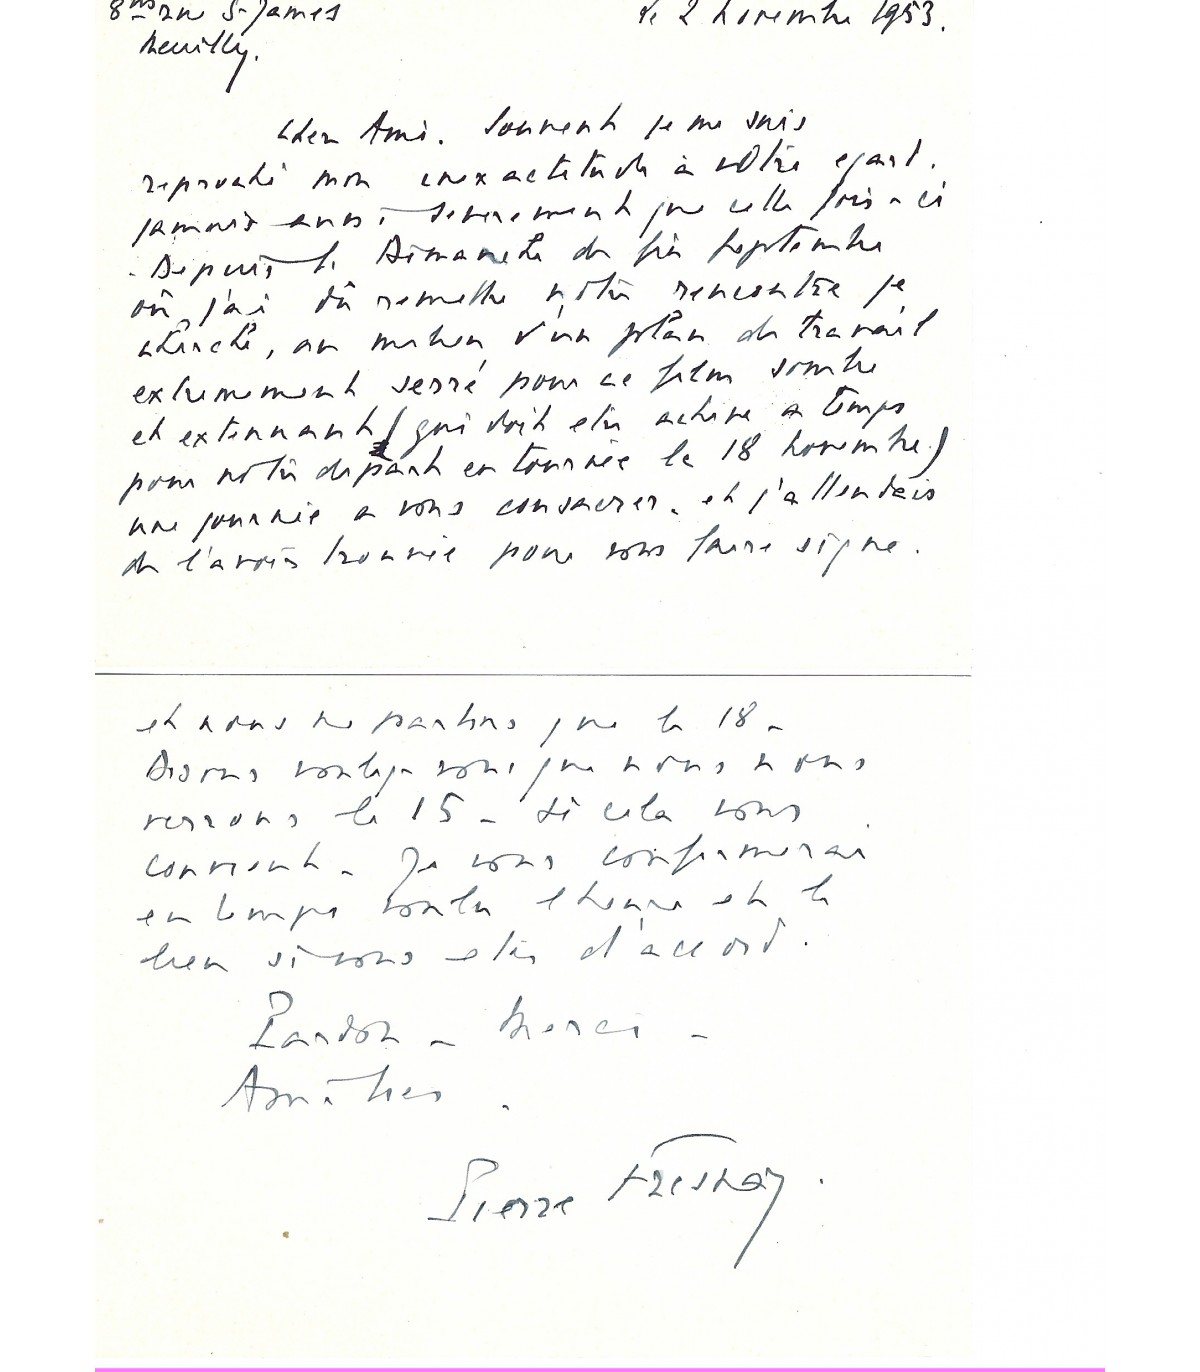 8 bis rue St James
le 2 novembre 1953.
Neuilly.
Cher Ami. Souvent je me suis
reproché mon inexactitude à vôtre egard.
jamais aussi severement que cette fois-ci
. Depuis le Dimanche de fin Septembre
où j'ai dû remettre nôtre rencontre je
cherche, au milieu d'un plan de travail
extremement serré pour ce film sombre
et extenuant (qui doit etre achevé a temps
pour nôtre depart en tournée le 18 novembre)
une journée a vous consacrer. et j'attendais
de l'avoir trouvée pour vous faire signe.
et nous ne partons que le 18 -
Disons voulez-vous que nous nous
verrons le 15 - Si cela vous
convient - Je vous confirmerai
en temps voulu l'heure et le
lieu si vous etes d'accord.
Pardon - Merci -
Amitiés.
Pierre Fresnay.